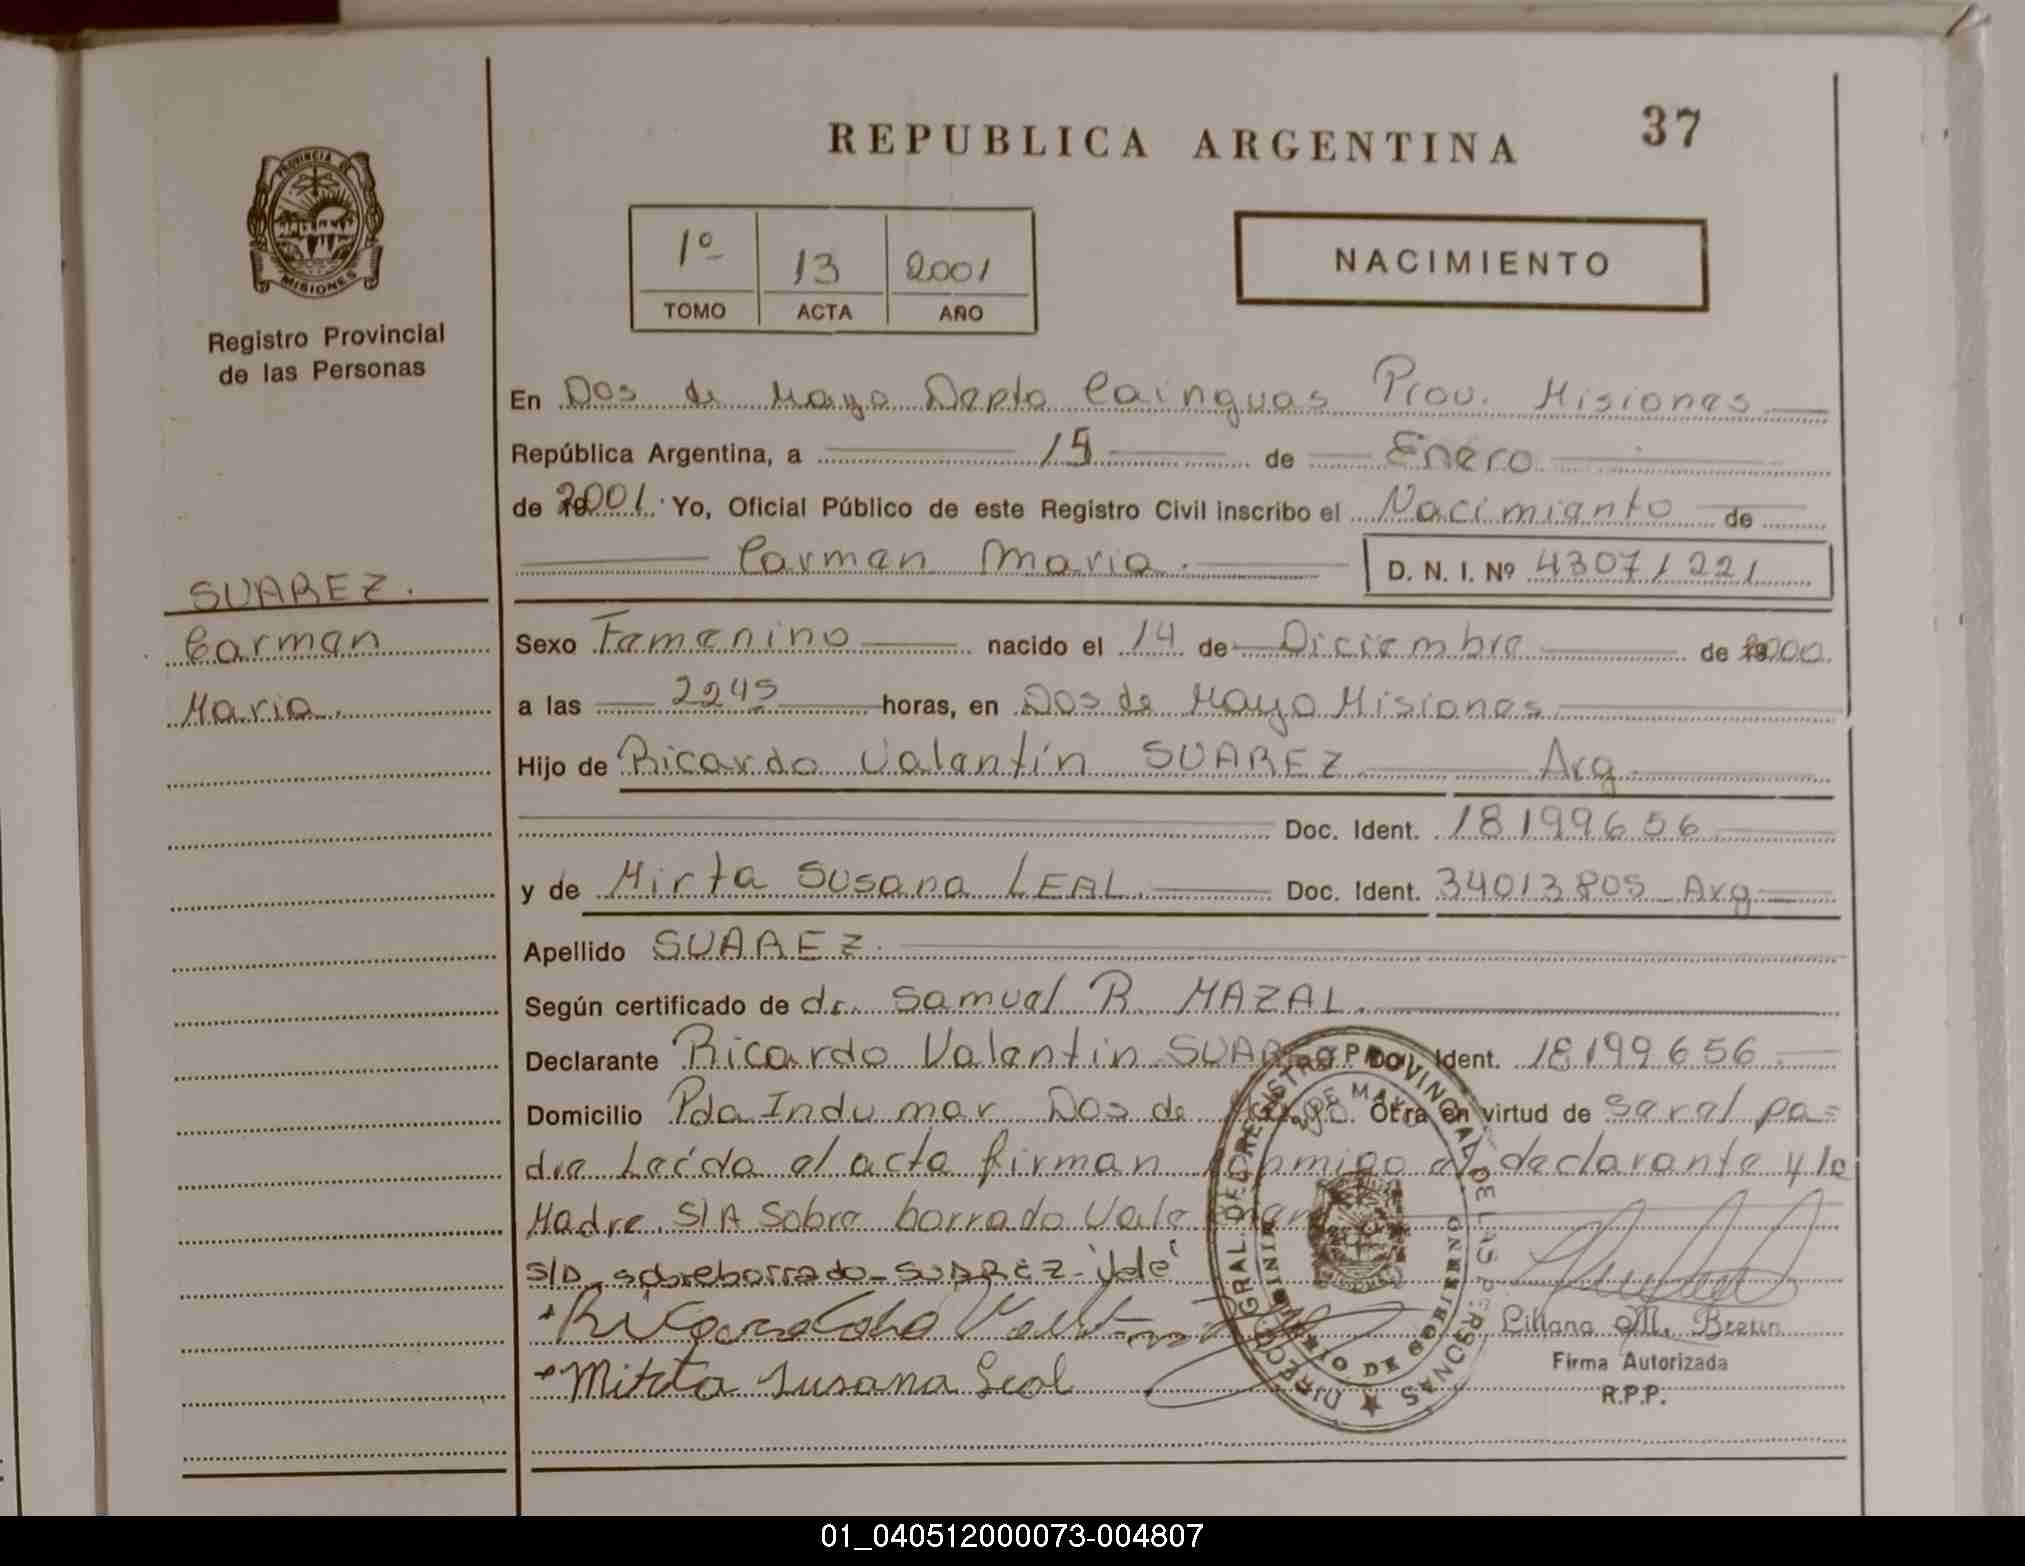 37
REPUBLICA ARGENTINA
PROVINCIA DE
MISIONES
Registro Provincial
de las Personas
1º 13 2001
TOMO ACTA AÑO
NACIMIENTO
En Dos de Mayo Depto Cainguas Prov. Misiones
República Argentina, a 15 de Enero
de 2001. Yo, Oficial Público de este Registro Civil inscribo el Nacimiento de
Carmen Maria. D. N. I. Nº 43071221
SUAREZ.
Carmen
Maria.
Sexo Femenino nacido el 14 de Diciembre de 2000
a las 2245 horas, en Dos de Mayo Misiones
Hijo de Ricardo Valentín SUAREZ Arg
Doc. Ident. 18199656
y de Mirta Susana LEAL. Doc. Ident. 34013805 Arg
Apellido SUAREZ.
Según certificado de dr. Samuel R. MAZAL.
Declarante Ricardo Valentin SUAREZ Doc. Ident. 18199656
Domicilio Pda Indumar Dos de Mayo. Otra en virtud de ser el pa=
dre Leída el acta firman conmigo el declarante y la
Madre. S/A Sobre borrado Vale
S/D sobreborrado - SUAREZ - Vale
Ricardo Valentin
Mirta Susana Leal
DIRECC. GRAL. DEL REGISTRO PROVINCIAL DE LAS PERSONAS
2 DE MAYO
MINISTERIO DE GOBIERNO
Liliana M. Breun
Firma Autorizada
R.P.P.
01_040512000073-004807